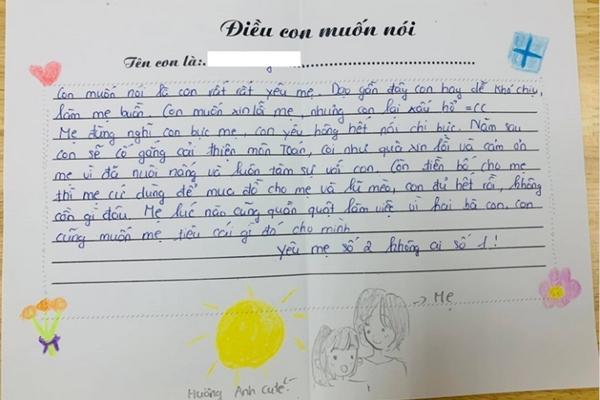 Điều con muốn nói
Tên con là:
Con muốn nói là con rất rất yêu mẹ. Dạo gần đây con hay dễ khó chịu,
làm mẹ buồn. Con muốn xin lỗi mẹ, nhưng con lại xấu hổ =cc
Mẹ đừng nghĩ con bực mẹ, con yêu hông hết nói chi bực. Năm sau
con sẽ cố gắng cải thiện môn Toán, coi như quà xin lỗi và cảm ơn
mẹ vì đã nuôi nấng và luôn tâm sự với con. Còn tiền bố cho mẹ
thì mẹ cứ dùng để mua đồ cho mẹ và lũ mèo, con đủ hết rồi, không
cần gì đâu. Mẹ lúc nào cũng quần quật làm việc vì hai bố con, con
cũng muốn mẹ tiêu cái gì đó cho mình
Yêu mẹ số 2 không ai số 1!
→ Mẹ
Hương Anh cute